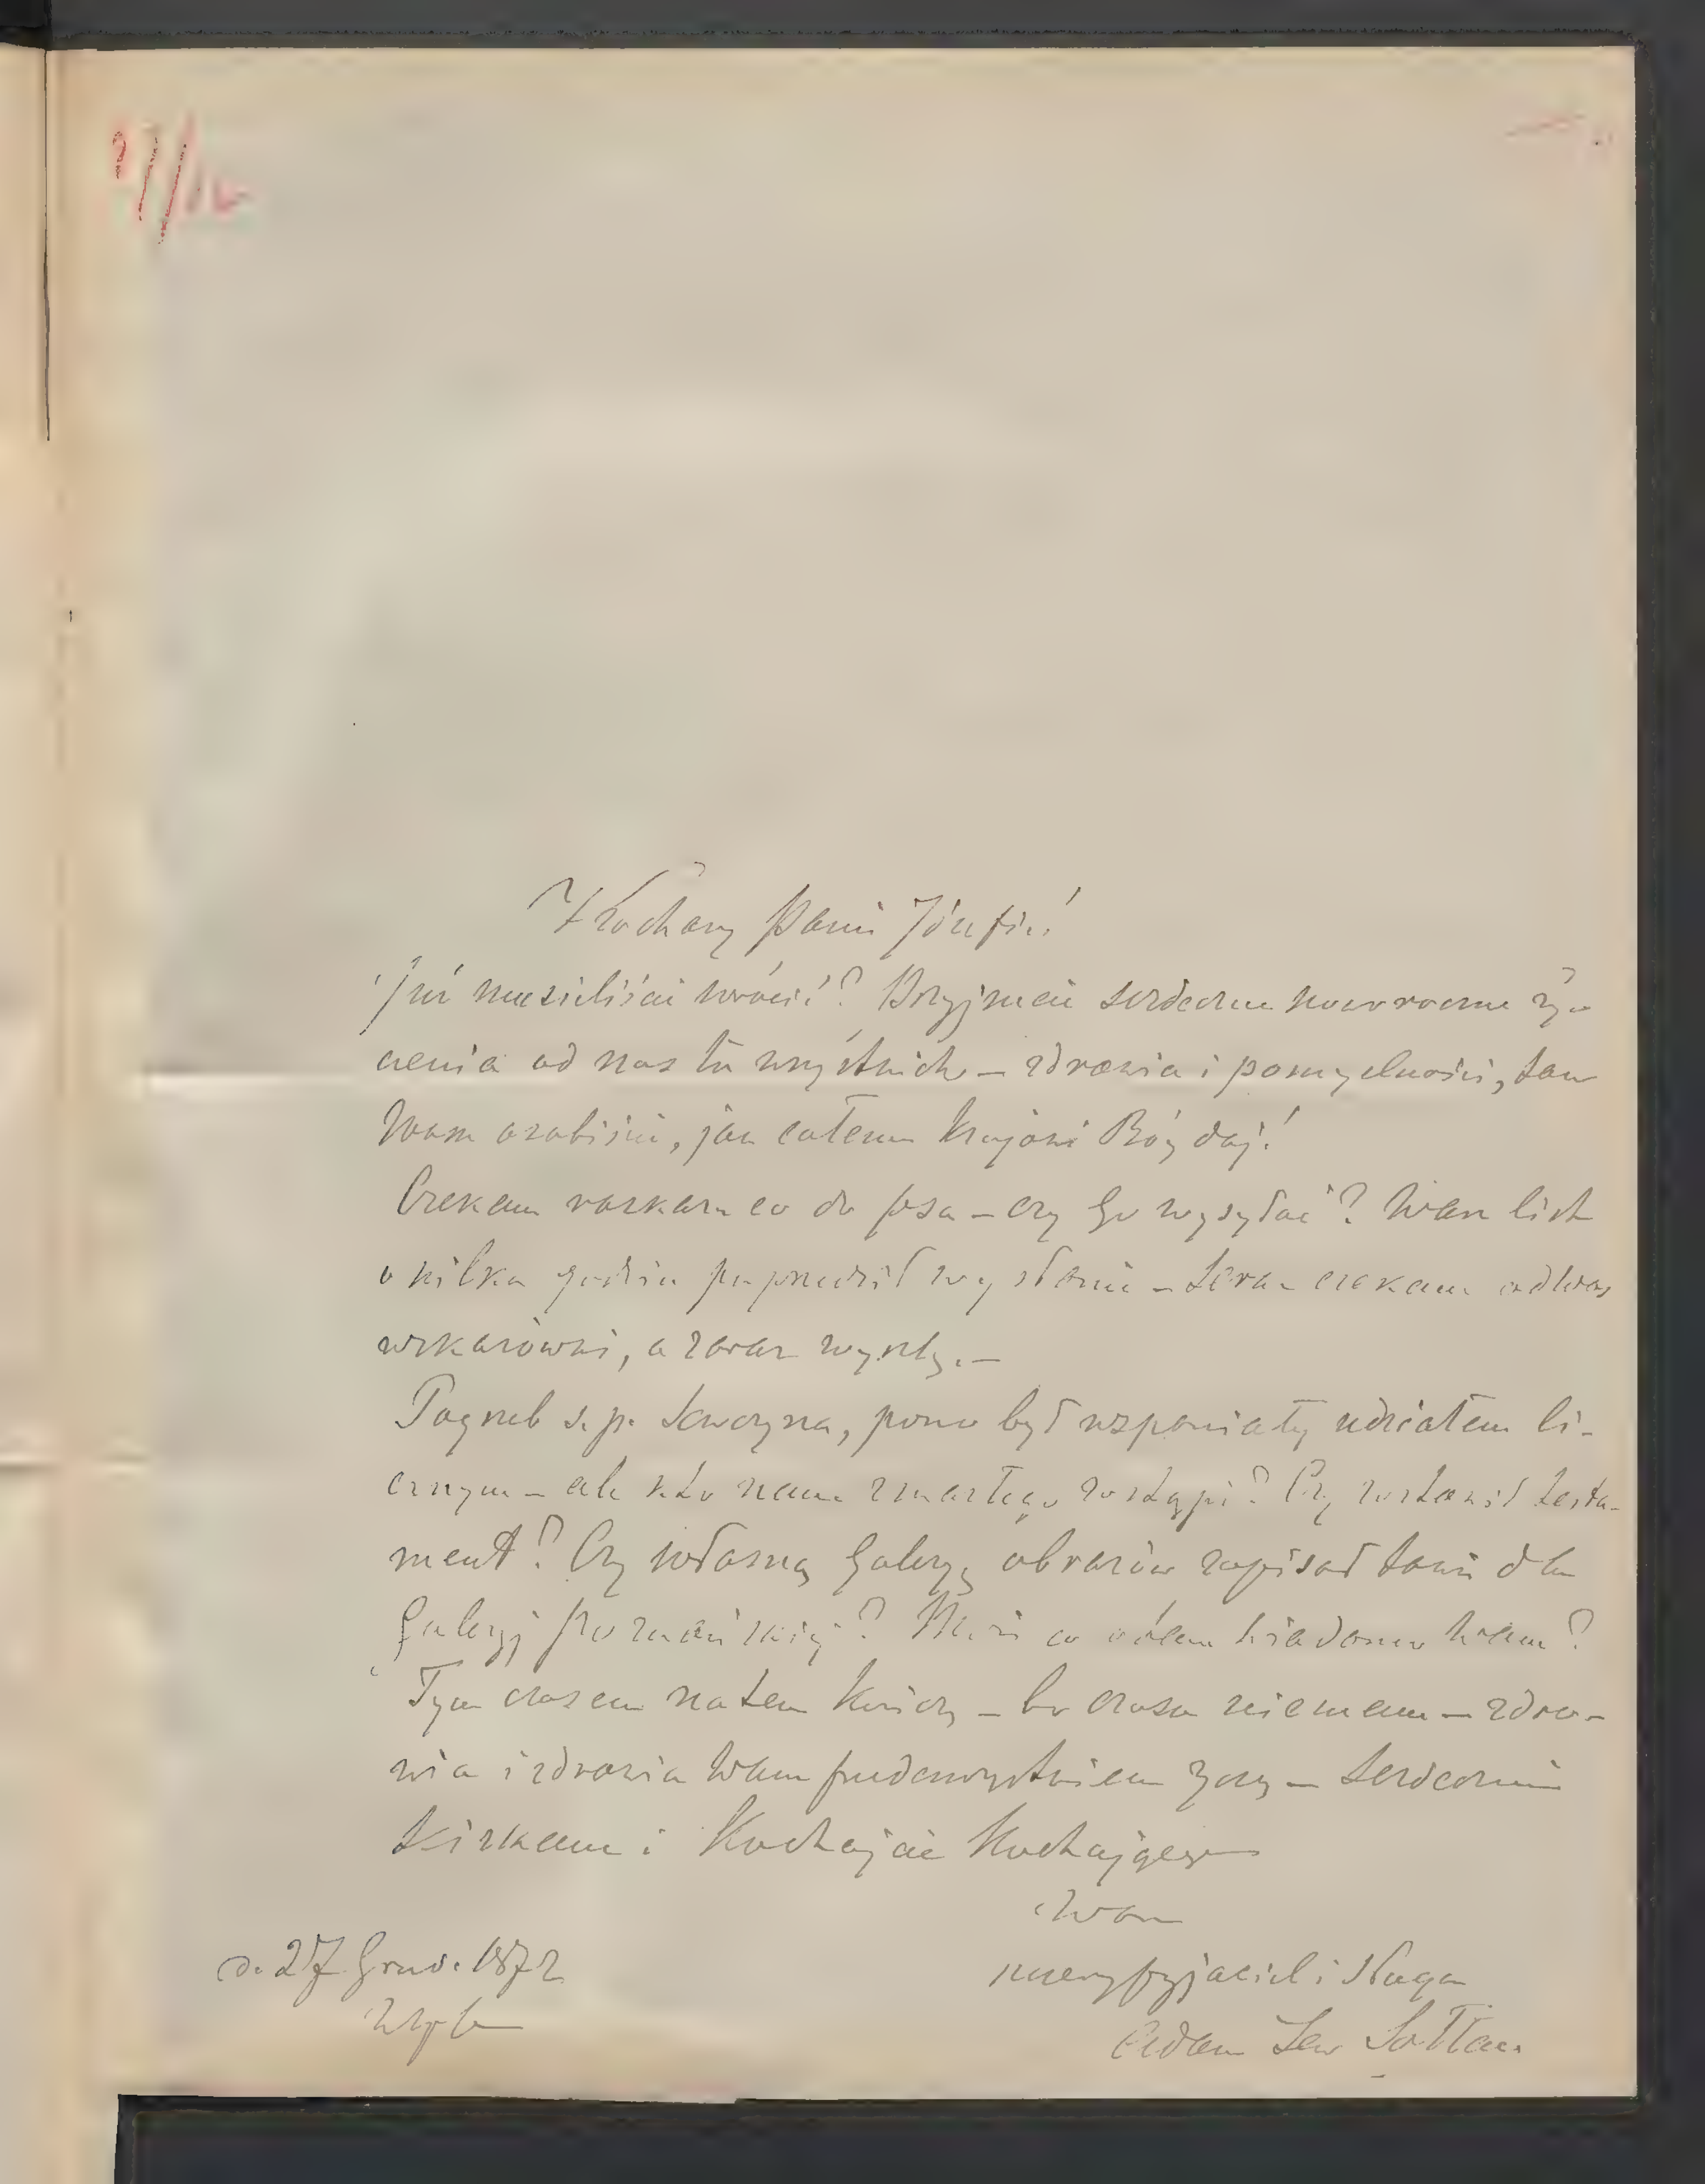 Kochany Panie Józefie!
Już musieliście wrócić? Przyjmcie serdeczne noworoczne ży-
czenia od nas tu wszystkich – zdrowia i pomyślności, tak
Wam osobiście, jak całemu Krajowi Bóg daj!
Czekam rozkazu co do psa – czy go wysyłać? Wasz list
o kilka godzin poprzedził wysłanie – teraz czekam od Was
wskazówki, a zaraz wyszlę. –
Pogrzeb s. p. Seweryna, pono był wspaniały udziałem li-
cznym – ale kto nam zmarłego zastąpi? Czy zostawił testa-
ment? Czy własną Galeryę obrazów zapisał także dla
Galeryj Poznańskiej? Może co o tem wiadomo Wam?
Tym czasem na tem kończę – bo czasu nie mam – zdro-
wia i zdrowia Wam przedewszystkiem życzę – serdecznie
ściskam i Kochajcie Kochającego
Was
szczery przyjaciel i sługa
Adam Lew Sołtan.
d. 27 Grud. 1872